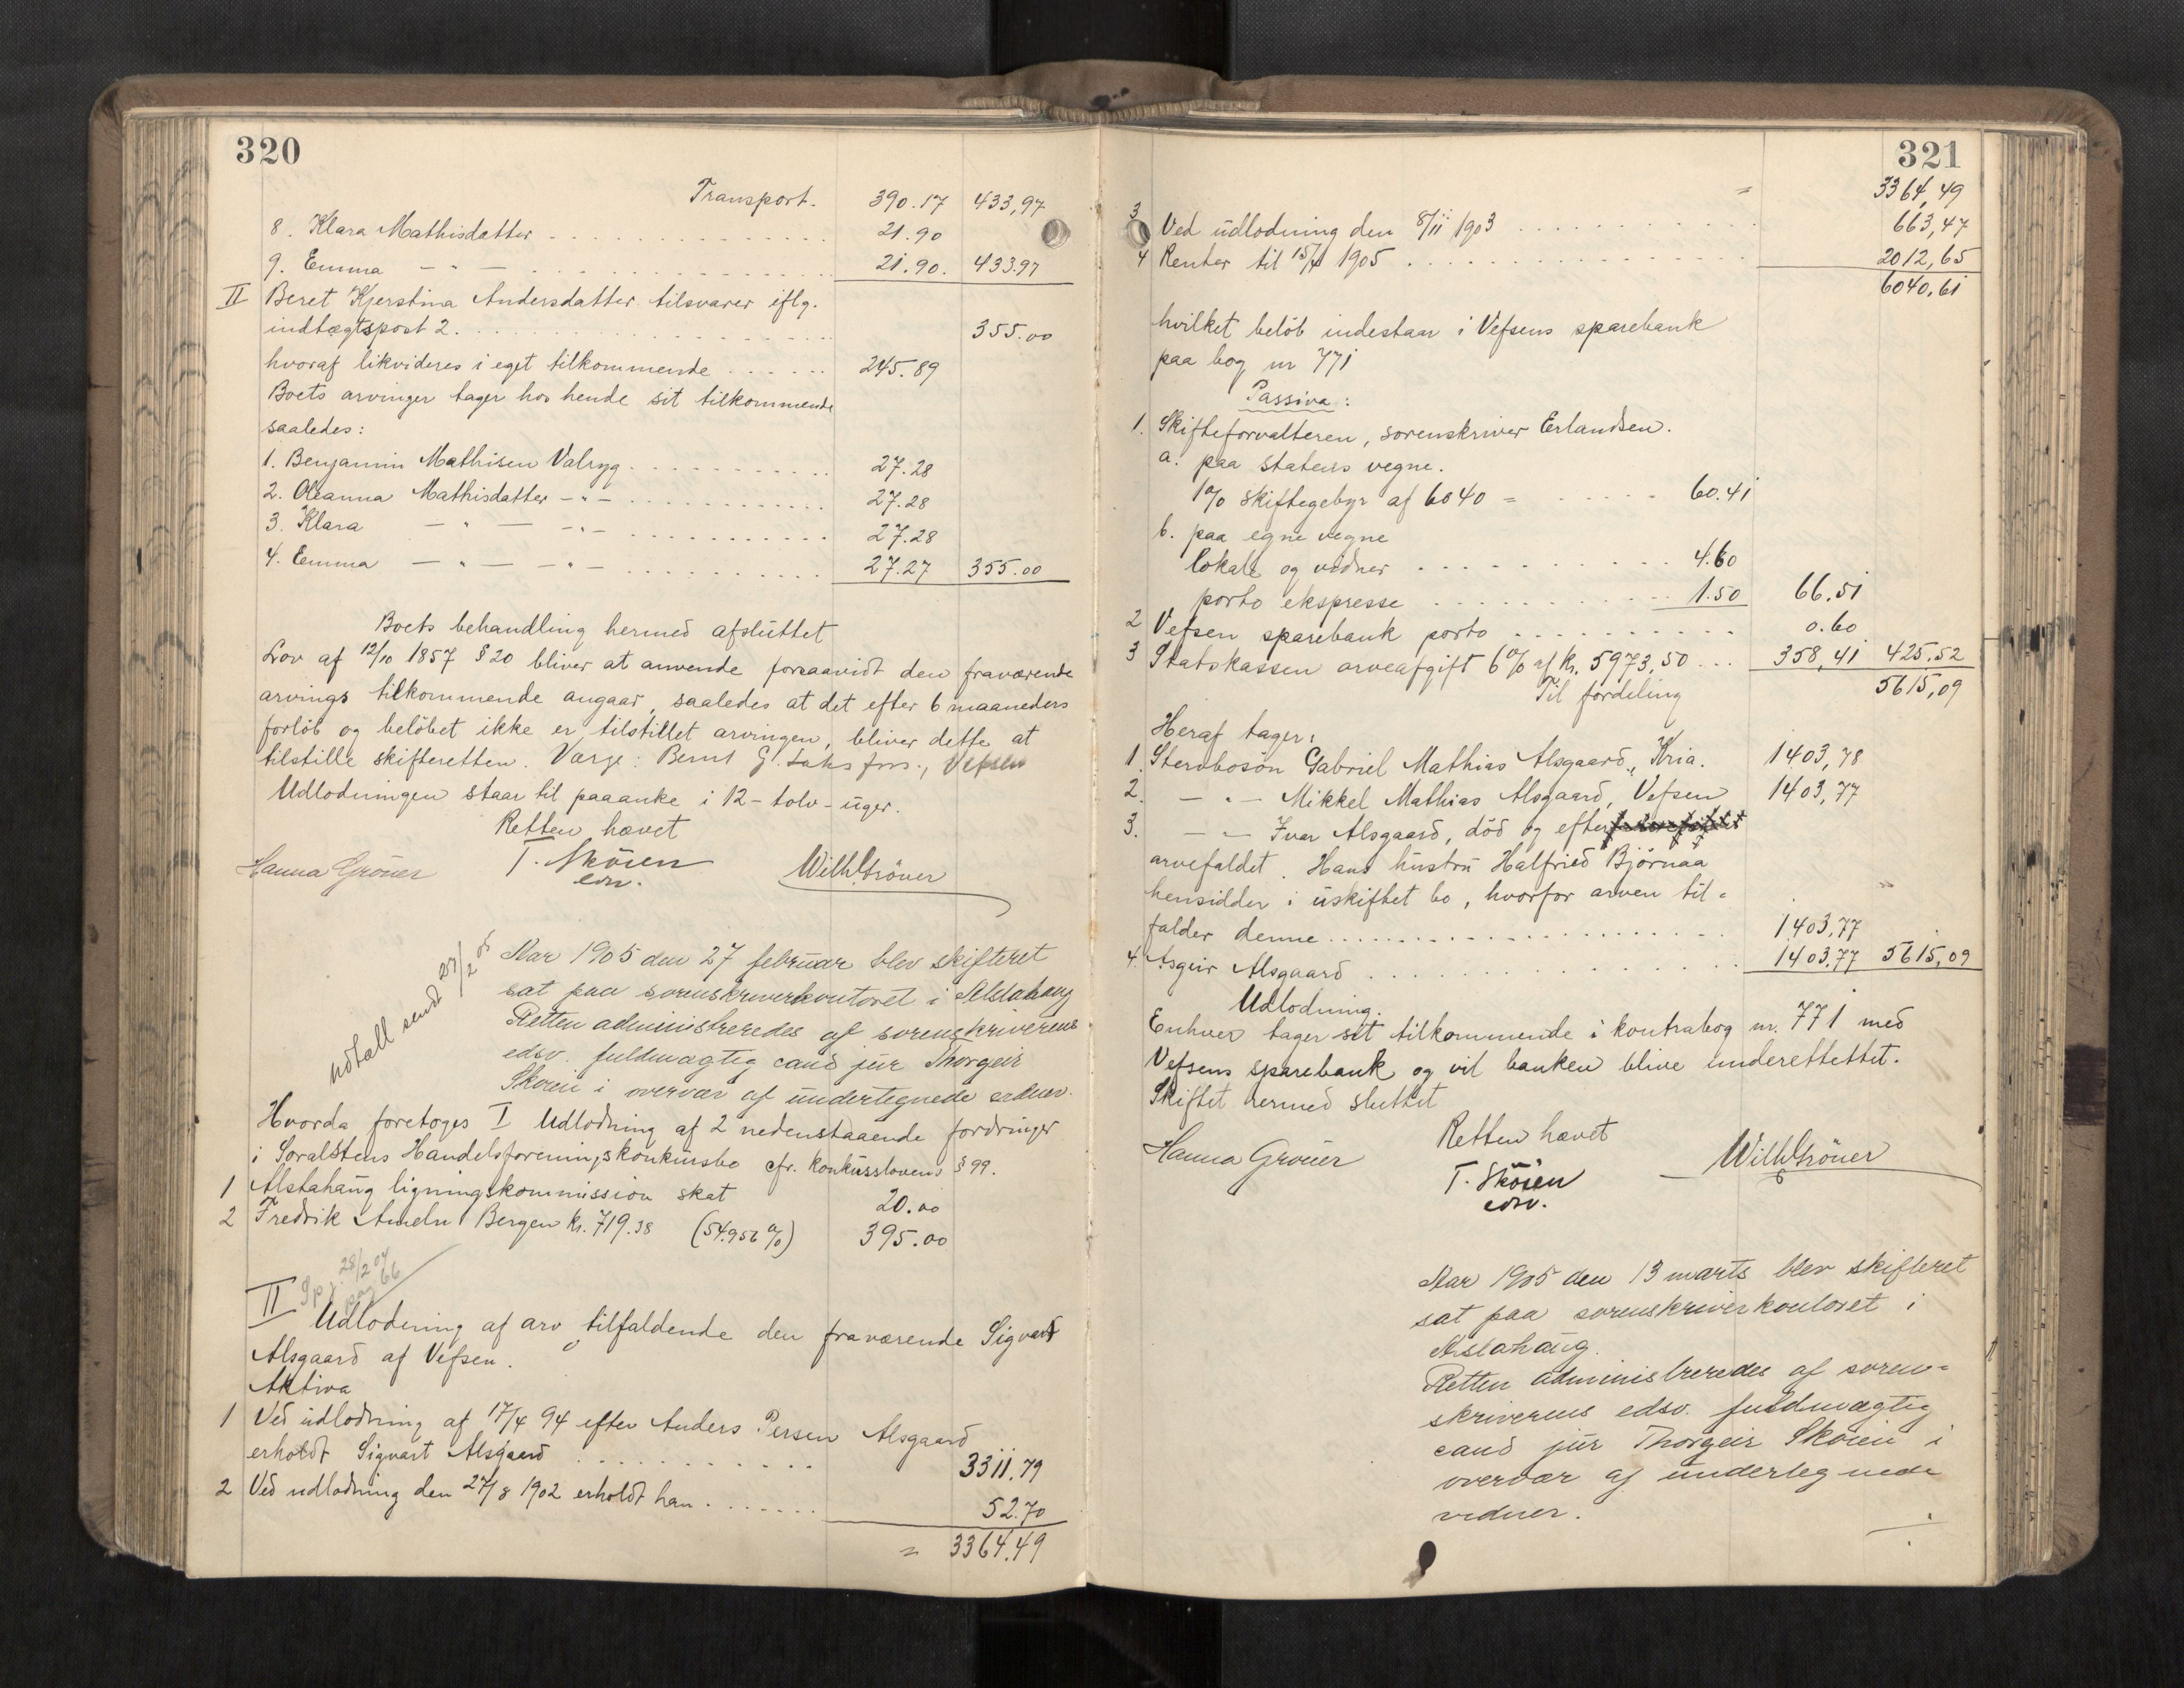 320
Transport. 390.17 433,97
8. Klara Mathisdatter 21.90
9. Emma — " — 21.90. 433.97
II Beret Kjerstina Andersdatter tilsvarer iflg.
indtægtspost 2. 355.00
hvoraf likvideres i eget tilkommende 245.89
Boets arvinger tager hos hende sit tilkommende
saaledes:
1. Benjamin Mathisen Valryg 27.28
2. Oleanna Mathisdatter -"- 27.28
3. Klara — " — -"- 27.28
4. Emma — " — -"- 27.27 355.00
Boets behandling hermed afsluttet
Lov af 12/10 1857 § 20 bliver at anvende forsaavidt den fraværende
arvings tilkommende angaar, saaledes at det efter 6 maaneders
forløb og beløbet ikke er tilstillet arvingen, bliver dette at
tilstille skifteretten. Værge: Bernt G. Laksfors., Vefsen
Udlodningen staar til paaanke i 12 - tolv - uger.
Retten hævet
Hanna Gröner T. Sköien Wilh. Gröner
edsv.
udtall sendt 27/2 05
Aar 1905 den 27 februar blev skifteret
sat paa sorenskriverkontoret i Alstahaug
Retten administreredes af sorenskriverens
edsv. fuldmægtig cand jur Thorgeir
Skøien i overvær af undertegnede vidner.
Hvorda foretoges I Udlodning af 2 nedenstaaende fordringer
i Søralstens Handelsforenings konkursbo cfr. konkurslovens § 99.
1 Alstahaug ligningskommission skat 20.00
2 Fredrik Ameln Bergen kr. 719.38 (54.956 %) 395.00
28/2 04
pag 66
II Udlodning af arv tilfaldende den fraværende Sigvart
Alsgaard af Vefsen.
Aktiva
1 Ved udlodning af 17/4 94 efter Anders Persen Alsgaard
erholdt Sigvart Alsgaard 3311.79
2 Ved udlodning den 27/8 1902 erholdt han 52.70
= 3364.49
321
= 3364,49
3 Ved udlodning den 8/11 1903 663,47
4 Renter til 15/4 1905 2012,65
6040,61
hvilket beløb indestaar i Vefsens sparebank
paa bog nr 771
Passiva:
1. Skifteforvalteren, sorenskriver Erlandsen.
a. paa statens vegne.
1% skiftegebyr af 6040 = 60.41
b. paa egne vegne
lokale og vidner 4.60
porto ekspresse 1.50 66.51
2 Vefsen sparebank porto 0.60
3 Statskassen arveafgift 6% af kr. 5973,50 358,41 425.52
Til fordeling 5615,09
Heraf tager:
1. Stervbosøn Gabriel Mathias Alsgaard, Kria. 1403,78
2. — " — Mikkel Mathias Alsgaard, Vefsen 1403,77
3. — " — Ivar Alsgaard, död og efter
arvefaldet. Hans hustru Halfried Bjørnaa
hensidder i uskiftet bo, hvorfor arven til-
falder denne 1403,77
4. Asgeir Alsgaard 1403.77 5615,09
Udlodning.
Enhver tager sit tilkommende i kontrabog nr. 771 med
Vefsens sparebank og vil banken blive underettettet.
Skiftet hermed sluttet
Retten hævet
Hanna Gröner T. Sköien Wilh. Gröner
edsv.
Aar 1905 den 13 marts blev skifteret
sat paa sorenskriverkontoret i
Alstahaug.
Retten administreredes af soren-
skriverens edsv. fuldmægtig
cand jur Thorgeir Skøien i
overvær af undertegnede
vidner.